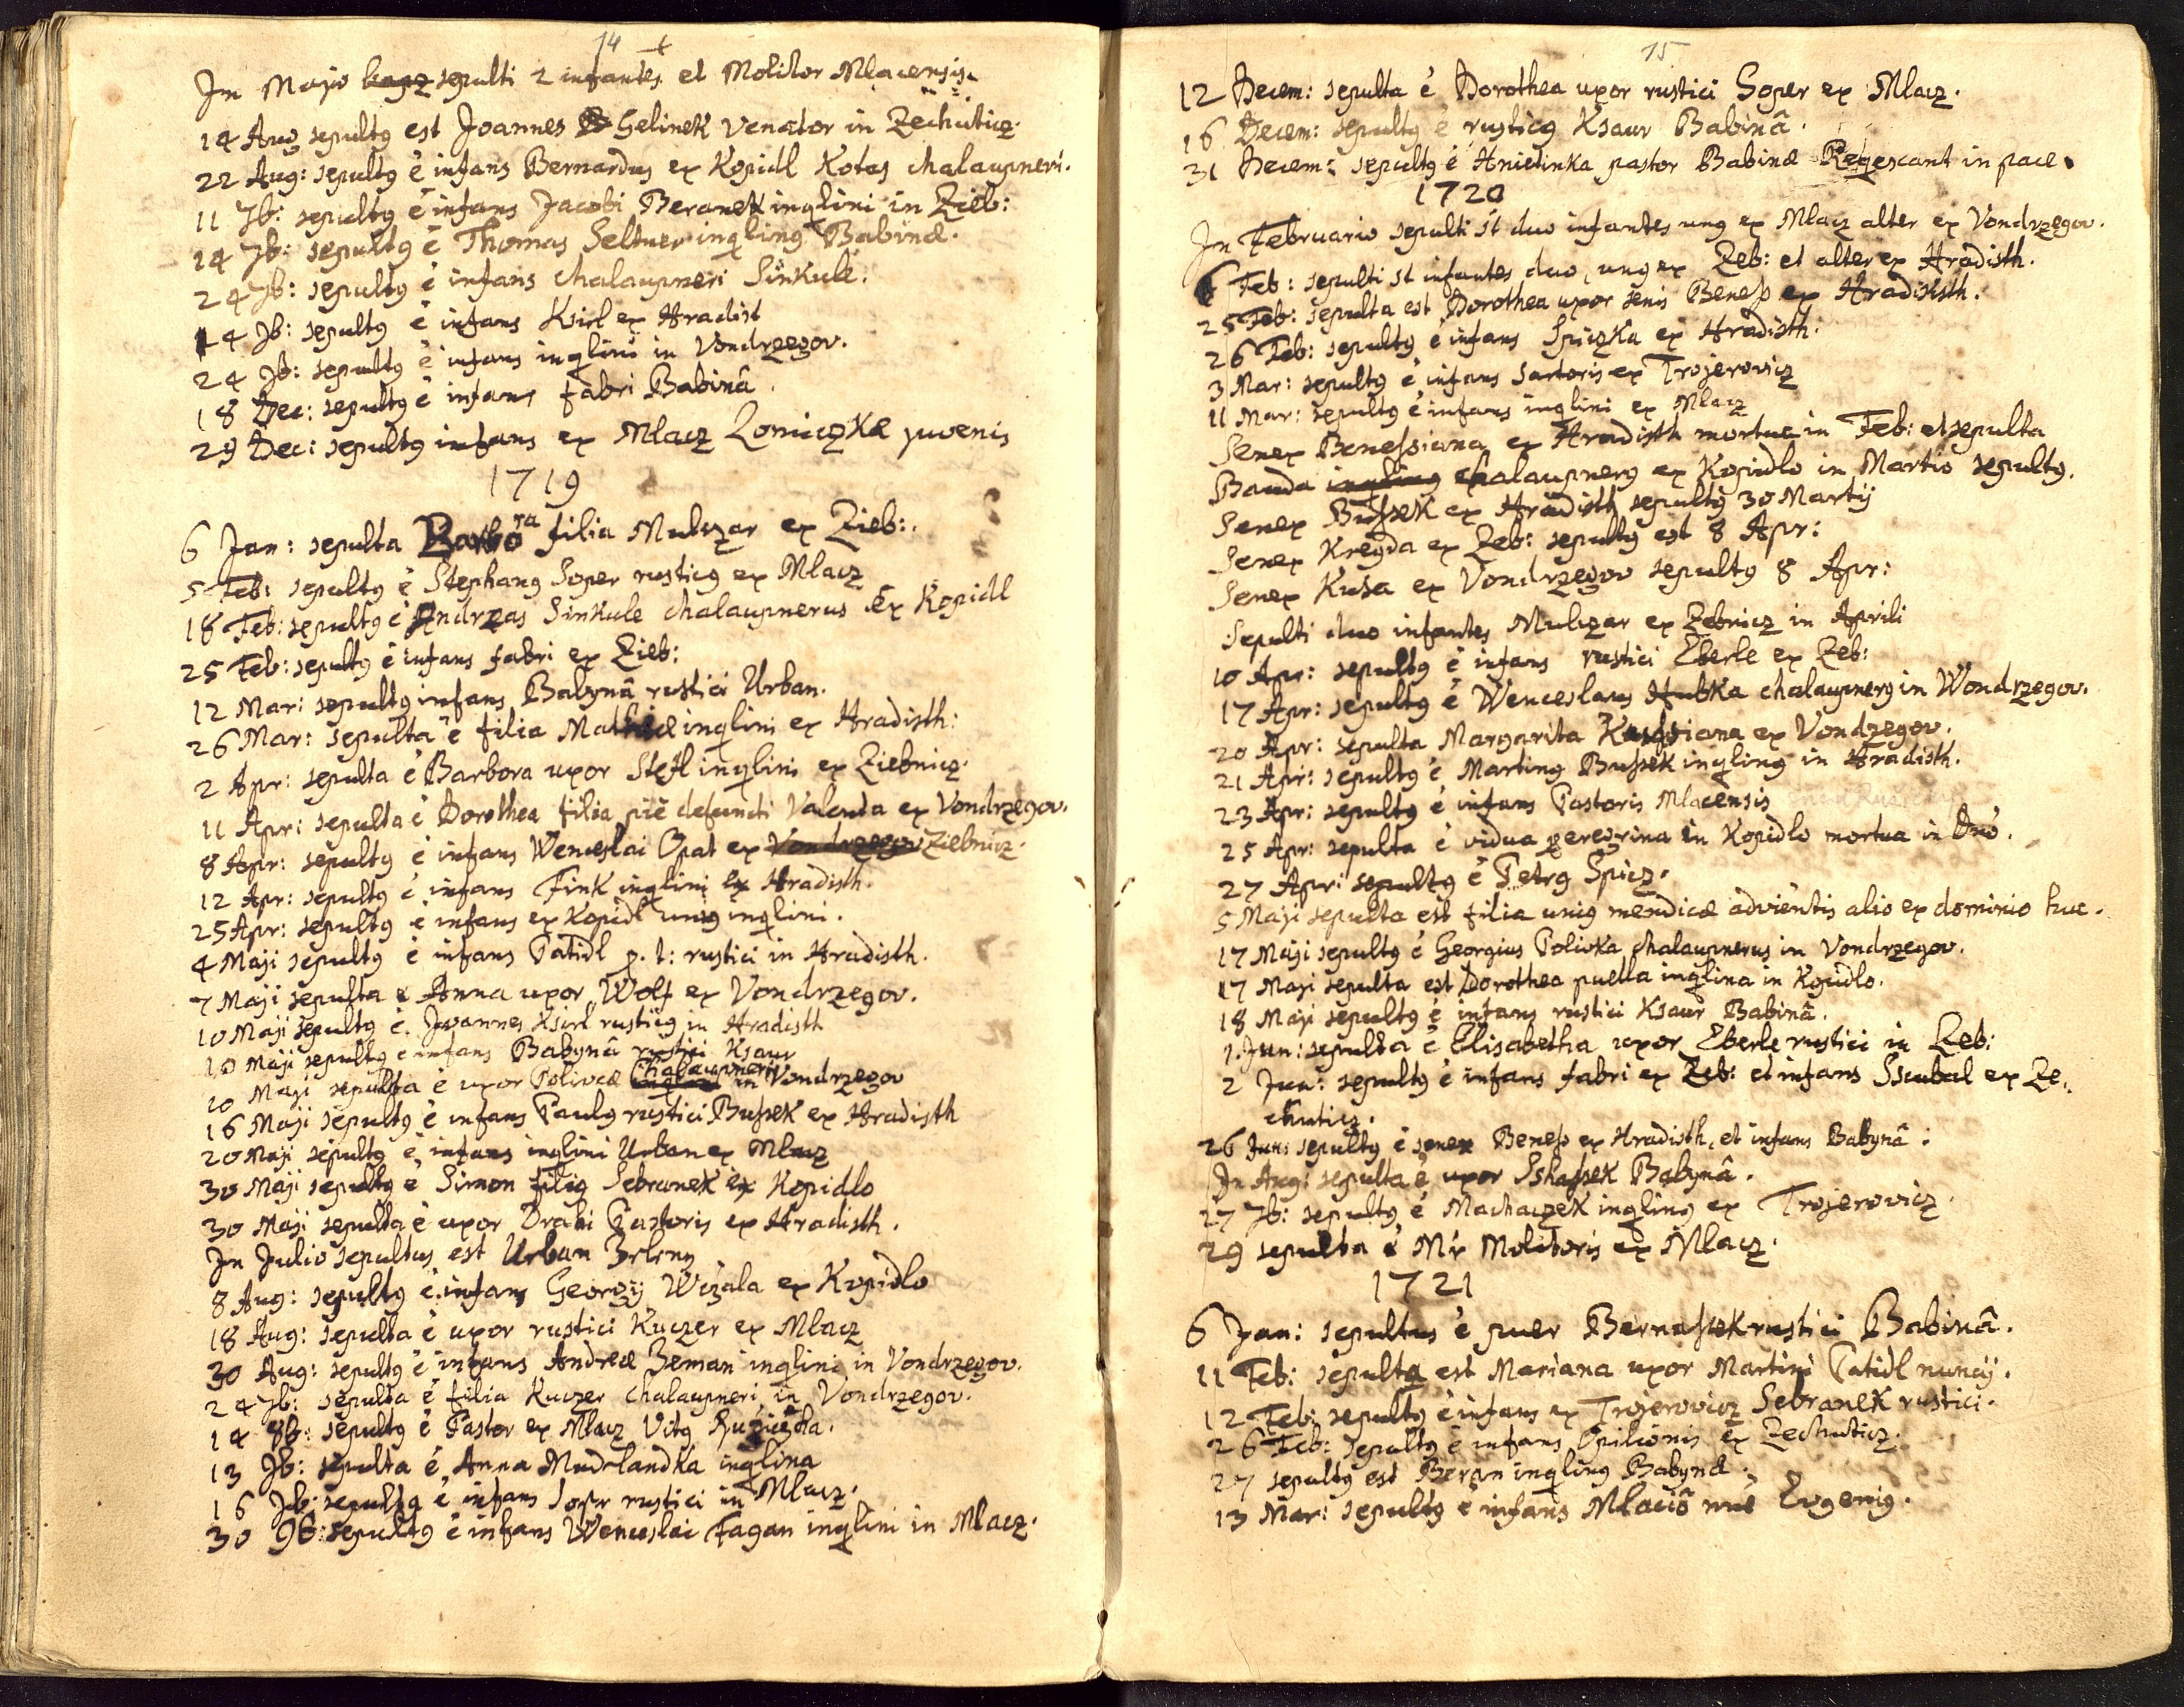 14 +
In Majo sepulti 2 infantes et Molitor Mlacensis.
14 Aug sepultꝰ est Joannes Gelinek Venator in Zechuticz.
22 Aug: sepultꝰ ē infans Bernardus ex Kopidl Kotas chalaupneri.
11 7b: sepultꝰ ē infans Jacobi Beranek inqlini in Zieb:
14 7b: sepultꝰ ē Thomas Seltner inqlinꝰ Babinæ.
24 7b: sepultꝰ ē infans chalaupneri Sinkule.
14 7b: sepultꝰ ē infans Ksirl ex Hradist
24 7b: sepultꝰ ē infans inqlini in Vondrzegov.
18 Dec: sepultꝰ ē infans fabri Babinâ.
29 Dec: sepultꝰ infans ex Mlacz Lomiczkæ juvenis
1719
6 Jan: sepulta Barbora filia Mulczar ex Zieb:.
5 Feb: sepultꝰ ē Stephanꝰ Soper rusticꝰ ex Mlacz
18 Feb: sepultꝰ ē Andrzas Sinkule chalaupnerus Ex Kopidl
25 Feb: sepultꝰ ē infans fabri ex Zieb:
12 Mar: sepultꝰ infans Babynâ rustici Urban.
26 Mar: sepulta ē filia Mathiæ inqlini ex Hradisth:
2 Apr: sepulta ē Barbora uxor Stefl inqlini ex Ziebnicz.
11 Apr: sepulta ē Dorothea filia piè defuncti Valenta ex Vondrzegov.
8 Apr: sepultꝰ ē infans Wenceslai Opat ex Vondrzegov Ziebnicz.
12 Apr: sepultꝰ ē infans Fink inqlini ex Hradisth.
25 Apr: sepultꝰ ē infans ex Kopidl uniꝰ inqlini.
4 Maji sepultꝰ ē infans Patidl p. t: rustici in Hradisth.
7 Maji sepulta ē Anna uxor Wolf ex Vondrzegov.
10 Maji sepultꝰ ē Joannes Ksirl rusticꝰ in Hradisth
10 Maji sepultꝰ ē infans Babynâ rustici Ksaur
10 Maji sepulta ē uxor Polivcæ chalaupneri in Vondrzegov
16 Maji sepultꝰ ē infans Paulꝰ rustici Bussek ex Hradisth
20 Maji sepultꝰ ē infans inqlini Urban ex Mlacz
30 Maji sepultꝰ ē Simon filiꝰ Sebranek ex Kopidlo
30 Maji sepulta ē uxor Drabi Pastoris ex Hradisth.
In Julio sepultus est Urban
8 Aug: sepultꝰ ē infans Georgij Wizala ex Kopidlo
18 Aug: sepulta ē uxor rustici Kuczer ex Mlacz
30 Aug: sepultꝰ ē infans Andreæ Zeman inqlini in Vondrzegov.
24 7b: sepulta ē filia Kuczer chalaupneri in Vondrzegov.
14 8b: sepultꝰ ē Pastor ex Mlacz Vitꝰ Ruziczka.
13 7b: sepulta ē Anna Mudrlandka inqlina
16 7b: sepulta ē infans Soper rustici in Mlacz.
30 9b: sepultꝰ ē infans Wenceslai Fagan inqlini in Mlacz.
15
12 Decem: sepulta ē Dorothea uxor rustici Soper ex Mlacz.
16 Decem: sepultꝰ ē rusticꝰ Ksaur Babinâ.
31 Decem: sepultꝰ ē Hnietinka pastor Babinæ Reqescant in pace.
1720
In Februario sepulti st duo infantes unꝰ ex Mlacz alter ex Vondrzegov.
6 Feb: sepulti st infantes duo, unꝰ ex Zeb: et alter ex Hradisth.
25 Feb: sepulta est Dorothea uxor senis Beness ex Hradishsth.
26 Feb: sepultꝰ ē infans Spiczka ex Hradisth.
3 Mar: sepultꝰ ē infans Sartoris ex Trojerovicz
11 Mar: sepultꝰ ē infans inqlini ex Mlacz
Senex Benessiana ex Hradisth mortua in Feb: et sepulta
Banda inqlinꝰ chalaupnerꝰ ex Kopidlo in Martio sepultꝰ.
Senex Bussek ex Hradisth sepultꝰ 30 Martij
Senex Kregda ex Zeb: sepultꝰ est 8 Apr:
Senex Kusa ex Vondrzegov sepultꝰ 8 Apr:
Sepulti duo infantes Mulczar ex Zebnicz in Aprili
10 Apr: sepultꝰ ē infans rustici Eberle ex Zeb:
17 Apr: sepultꝰ ē Wenceslaus Hubka chalaupnerꝰ in Wondrzegov.
20 Apr: sepulta Margarita ex Vondzegov.
21 Apr: sepultꝰ ē Martinꝰ Bussek inqlinꝰ in Hradisth.
23 Apr: sepultꝰ ē infans Pastoris Mlacensis
25 Apr: sepulta ē vidua peregrina in Kopidlo mortua in Dnō.
27 Apr: sepultꝰ ē Petrꝰ Spicz.
5 Maji sepulta est filia uniꝰ mendicæ advientis alio ex dominio huc.
17 Maji sepultꝰ ē Georgius Polivka chalaupnerus in Vondrzegov.
17 Maji sepulta est Dorothea puella inqlina in Kopidlo.
18 Maji sepultꝰ ē infans rustici Ksaur Babinâ.
1. Jun: sepulta ē Elisabetha uxor Eberle rustici in Zeb:
2 Jun: sepultꝰ ē infans fabri ex Zeb: et infans Sscubal ex Ze.
chuticz.
26 Jun: sepultꝰ ē senex Beness ex Hradisth, et infans Babynâ.
In Aug: sepulta ē uxor Sshassek Babynâ.
27 7b: sepultꝰ ē Machaczek inqlinꝰ ex Trojerovicz.
29 sepulta ē Mr Molitoris ex Mlacz.
1721
6 Jan: sepultus ē puer Bernassek rustici Babinâ.
11 Feb: sepulta est Mariana uxor Martini Patidl nuncij.
12 Feb: sepultꝰ ē infans ex Trojerovicz Sebranek rustici.
26 Feb: sepultꝰ ē infans Opilionis ex Zechuticz.
27 sepultꝰ est Beran inqlinꝰ Babynæ.
13 Mar: sepultꝰ ē infans Mlaciō nnē Eugeniꝰ.